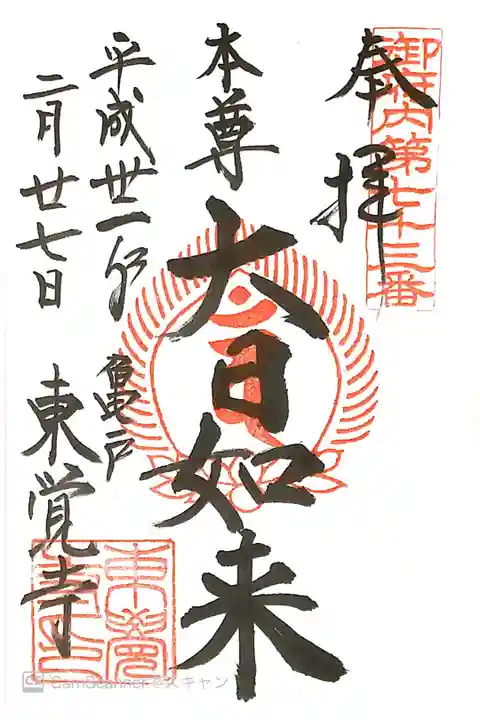 御府内第七十三番
奉拝
本尊
大日如来
平成卅一年
二月廿七日
亀戸
東覚寺
CamScannerでスキャン